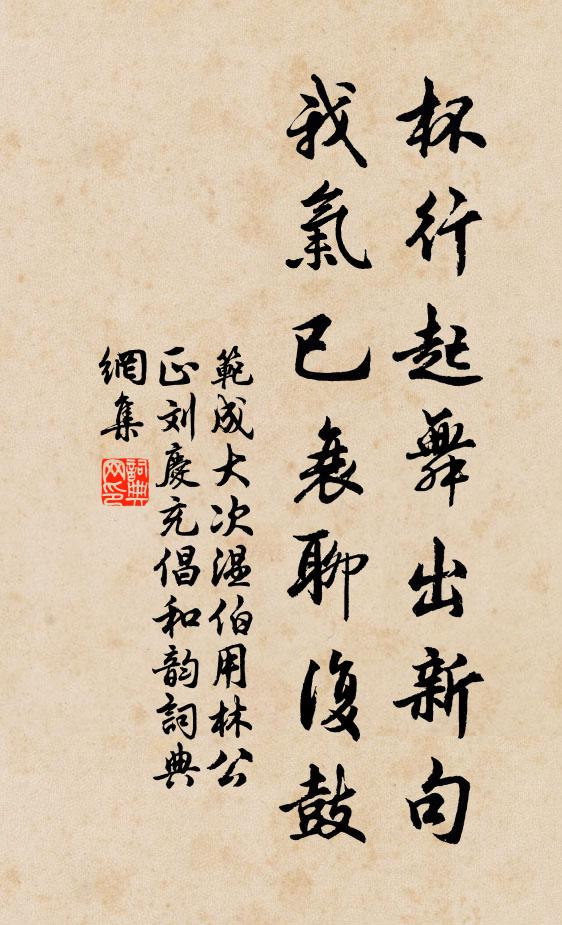 杯行起舞出新句
我氣已衰聊復鼓
範成大次溫伯用林公
正刘慶充倡和韵詞典
網集
詞典
网印